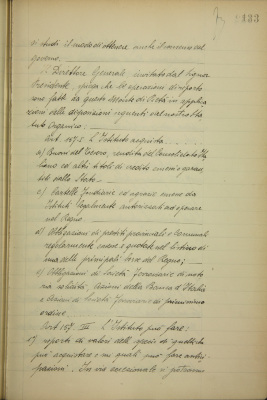 133
e studi il modo di ottenere anche il concorso del
governo.
Il Direttore Generale, invitato dal Signor
Presidente, spiega che le operazioni di riporto
fatte da questo Monte di Pietà in applica
zione delle disposizioni vigenti del nostro Sta
tuto Organico:
Art. L'Istituto acquista
a) Buoni del Tesoro, rendita del Consolidato Ita
liano ed altri titoli di credito emessi e garan
titi dallo Stato
c) Cartelle fondiarie ed agrarie emesse da
Istituti legalmente autorizzati ad operare
nel Regno
d) Obbligazioni di prestiti provinciali e comunali
regolarmente emesse e quotate nel listino di
una delle principali borse del Regno;
e) Obbligazioni di Società ferroviarie di
azioni della Banca d'Italia
e azioni di Società ferroviarie di primissimo
ordine.
Art. III L'Istituto può fare:
riporti di valori della specie di quelli che
può acquistare e sui quali può fare antici
pazioni. In via eccezionale si potranno